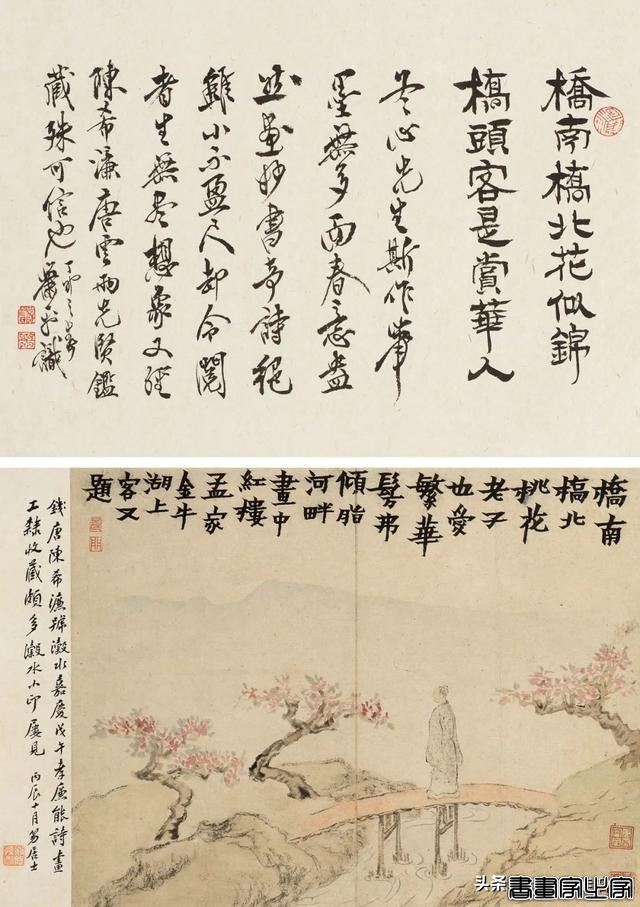 橋南橋北花似錦
橋頭客是賞華人
冬心先生斯作筆
墨無多而春意盎
然畫妙書奇詩絕
雖小不盈尺却令閱
者生無盡想象又經
陳希濂唐雲兩先賢鑑
藏殊可信也
橋南
橋北
桃花
老子
也愛
繁華
髩弗
傾脂
河畔
畫中
紅樓
孟家
金牛
湖上
客又
題
錢唐陳希濂號瀔水嘉慶戊午孝廉能詩畫
工隸收藏頗多瀔水小印屢見 丙辰十月
頭条 書畫家必字